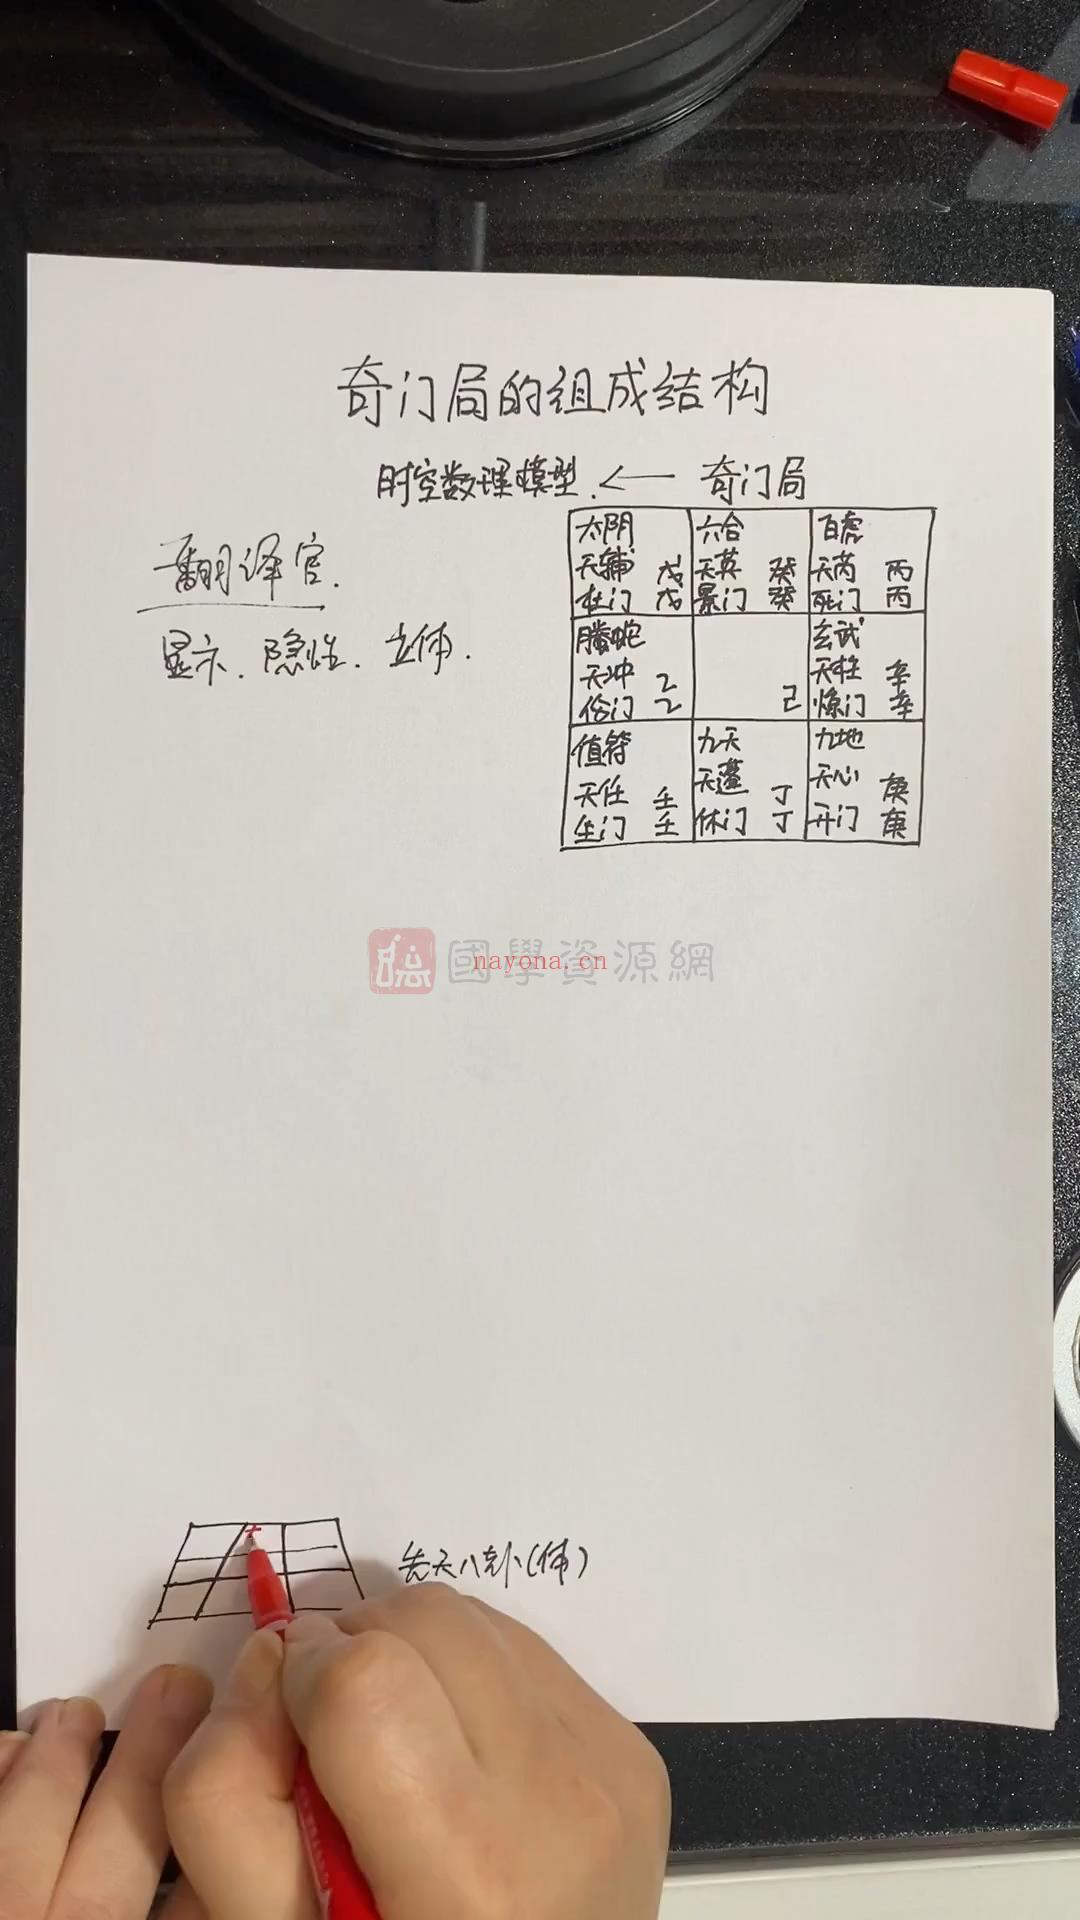 奇门局的组成结构
时空数理模型. ← 奇门局
翻译官.
显示. 隐性. 立体.
太阴 六合 白虎
天辅 戊 天英 癸 天芮 丙
杜门 戊 景门 癸 死门 丙
腾蛇 玄武
天冲 乙 天柱 辛
伤门 乙 己 惊门 辛
值符 九天 九地
天任 壬 天蓬 丁 天心 庚
生门 壬 休门 丁 开门 庚
國學資源網
nayona.cn
先天八卦(体)